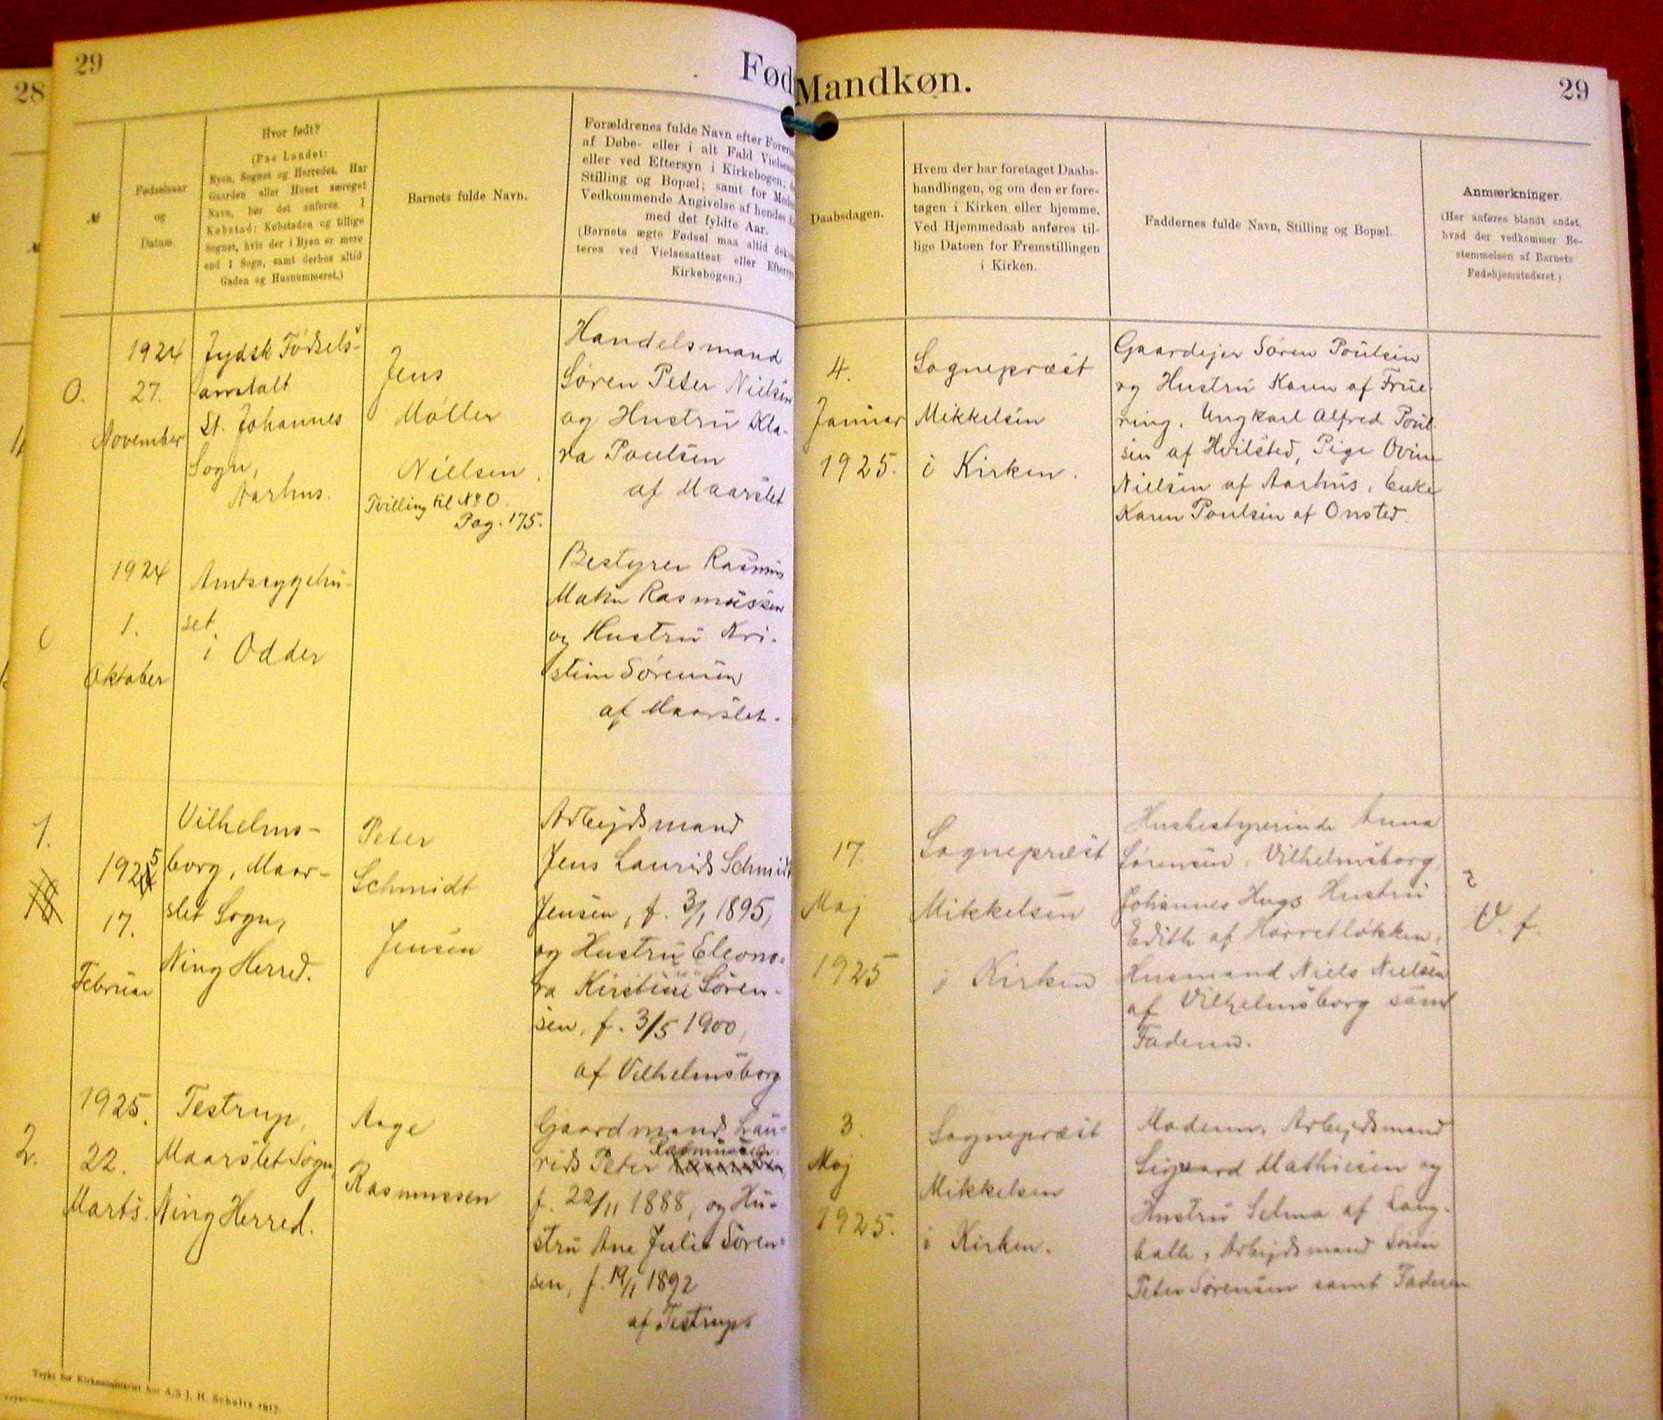 28
29
Fød
№
Fødselsaar
og
Datum.
Hvor født?
(Paa Landet:
Byen, Sognet og Herredet. Har
Gaarden eller Huset særeget
Navn, bør det anføres. I
Købstad: Købstaden og tillige
Sognet, hvis der i Byen er mere
end 1 Sogn, samt derhos altid
Gaden og Husnummeret.)
Barnets fulde Navn.
Forældrenes fulde Navn efter
af Døbe- eller i alt Fald
eller ved Eftersyn i Kirkebogen;
Stilling og Bopæl; samt for
Vedkommende Angivelse af hendes
med det fyldte Aar.
(Barnets ægte Fødsel maa altid
teres ved Vielsesattest eller
Kirkebogen.)
0.
1924
27.
November
Jydsk Fødsels-
anstalt
St. Johannes
Sogn,
Aarhus.
Jens
Møller
Nielsen.
Tvilling til № 0.
Pag. 175.
Handelsmand
Søren Peter Nielsen
og Hustru Kla-
ra Poulsen
af Maarslet
1924
1.
Oktober
Amtssygehu-
set
i Odder
Bestyrer Rasmus
Rasmussen
og Hustru Kri-
stine Sørensen
af Maarslet.
1.
1925
17.
Februar
Vilhelms-
borg, Maar-
slet Sogn,
Ning Herred.
Peter
Schmidt
Jensen
Arbejdsmand
Jens Laurids Schmidt
Jensen, f. 3/1 1895,
og Hustru Eleono-
ra Kirstine Søren-
sen, f. 3/5 1900,
af Vilhelmsborg
2.
1925.
22.
Marts.
Testrup,
Maarslet Sogn,
Ning Herred.
Aage
Rasmussen
Gaardmand Lau-
rids Peter Rasmussen
f. 22/11 1888, og Hu-
stru Ane Julie Søren-
sen, f. 19/1 1892
af Testrup
Trykt for Kirkeministeriet hos A/S J. H. Schultz 1917.
Mandkøn.
29
Daabsdagen.
Hvem der har foretaget Daabs-
handlingen, og om den er fore-
tagen i Kirken eller hjemme.
Ved Hjemmedaab anføres til-
lige Datoen for Fremstillingen
i Kirken.
Faddernes fulde Navn, Stilling og Bopæl.
Anmærkninger.
(Her anføres blandt andet,
hvad der vedkommer Be-
stemmelsen af Barnets
Fødehjemstedsret.)
4.
Januar
1925.
Sognepræst
Mikkelsen
i Kirken.
Gaardejer Søren Poulsen
og Hustru Karen af Frue-
ring, Ungkarl Alfred Poul-
sen af Hvilsted, Pige Ovine
Nielsen af Aarhus, Enke
Karen Poulsen af Onsted.
17.
Maj
1925
Sognepræst
Mikkelsen
i Kirken
Husbestyrerinde Anna
Sørensen, Vilhelmsborg,
Johannes Hugs Hustru
Edith af Horretløkken,
Husmand Niels Nielsen
af Vilhelmsborg samt
Faderen.
V. f.
3.
Maj
1925.
Sognepræst
Mikkelsen
i Kirken.
Moderen, Arbejdsmand
Sigvard Mathiesen og
Hustru Selma af Lang-
balle, Arbejdsmand Søren
Peter Sørensen samt Faderen